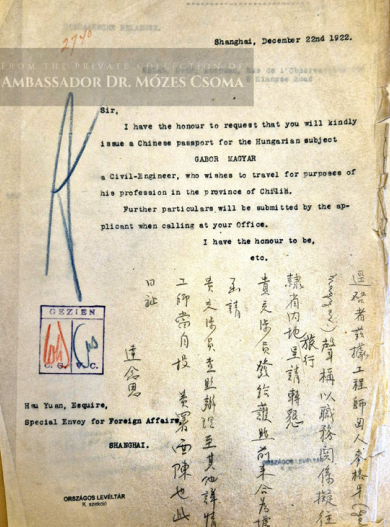 27 40
Shanghai, December 22nd 1922.
FROM THE PRIVATE COLLECTION OF
AMBASSADOR DR. MÓZES CSOMA
Sir,
I have the honour to request that you will kindly
issue a Chinese passport for the Hungarian subject
GABOR MAGYAR
a Civil-Engineer, who wishes to travel for purposes of
his profession in the province of Chihli.
Further particulars will be submitted by the ap-
plicant when calling at your Office.
I have the honour to be,
etc.
逕啓者茲據工程師匈人麥格年
聲稱以職務關係擬往
隸省內地旅行呈請轉懇
貴交涉員發給護照前來合
函請
貴交涉員查照辦理至其他詳情
工師當自投貴署面陳也此
日祉
達念思
GEZIEN
C. G. V. C.
Hsu Yuan, Esquire,
Special Envoy for Foreign Affairs,
SHANGHAI.
ORSZÁGOS LEVÉLTÁR
K szekció